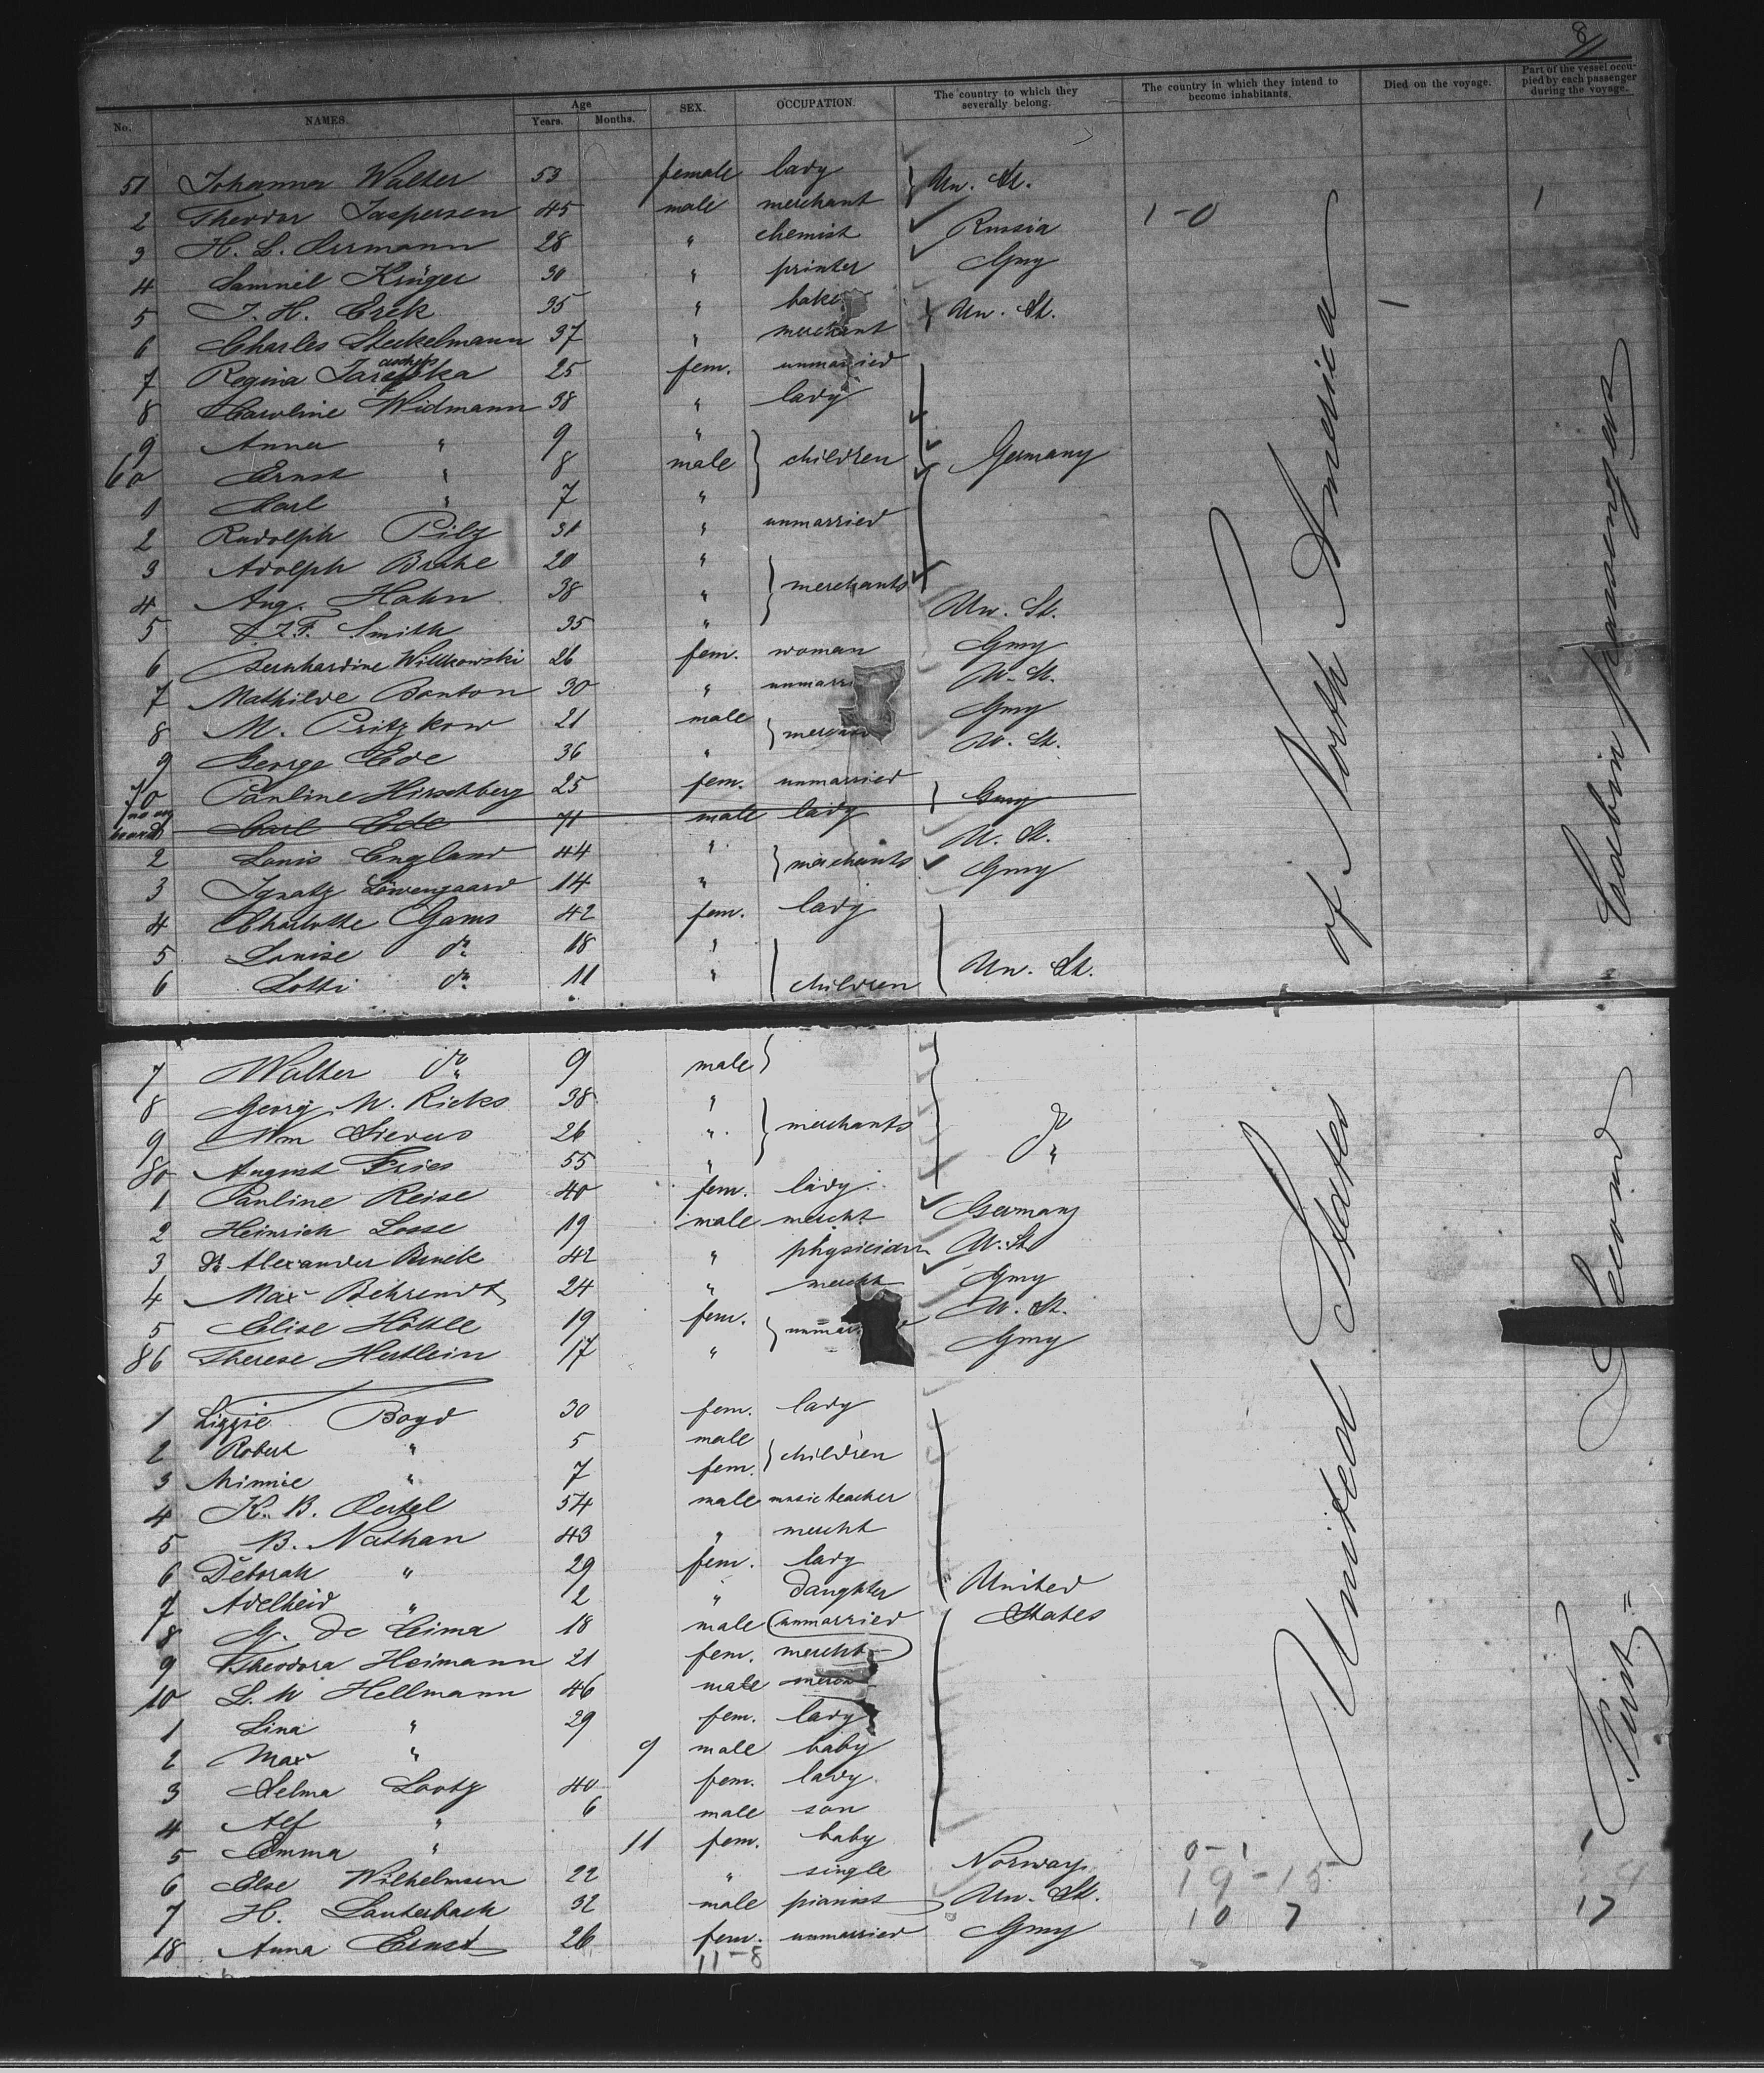 8
No. NAMES. Age Years. Months. SEX. OCCUPATION. The country to which they severally belong. The country in which they intend to become inhabitants. Died on the voyage. Part of the vessel occupied by each passenger during the voyage.
51 Johanna Walter 53 female lady } Un. St.
2 Theodor Jaspersen 45 male merchant 1-0 1
3 H. L. Ormann 28 " chemist Russia
4 Samuel Krüger 30 " printer Gmy
5 J. H. Erck 35 " baker } Un. St.
6 Charles Steckelmann 37 " merchant
7 Regina 25 fem. unmarried
8 Caroline Widmann 38 " lady
9 Anna " 9 "
60 Ernst " 8 male } children Germany
1 Carl " 7 "
2 Rudolph Pilz 31 " unmarried
3 Adolph Brake 20 "
4 Aug. Hahn 38 " } merchants
5 F. Smith 35 " Un. St.
6 Bernhardine Willkowski 26 fem. woman Gmy
7 Mathilde Bonton 30 " unmarri U. St.
8 M. Pritzkow 21 male Gmy
9 George Ede 36 " } merchan U. St.
70 Pauline Hirschberg 25 fem. unmarried } Gmy
1 no on board Carl Ede 71 male lady
2 Louis England 44 " U. St.
3 Ignatz Löwengaard 14 " } merchants Gmy
4 Charlotte Gams 42 fem. lady
5 Louise do 18 "
6 Lotti do 11 " children Un. St.
7 Walter do 9 male
8 Georg. M. Ricks 38 "
9 Wm Sievers 26 " } merchants do
80 August Fries 55 "
1 Pauline Reise 40 fem. lady
2 Heinrich Losse 19 male mercht Germany
3 Dr Alexander Beneke 42 " physician U. St.
4 Max Behrendt 24 " mercht Gmy
5 Elise Höltle 19 fem. } unmar U. St.
86 Therese Hertlein 17 " Gmy
1 Lizzie Boyd 30 fem. lady
2 Robert " 5 male } children
3 Minnie " 7 fem.
4 K. B. Oertel 54 male music teacher
5 B. Nathan 43 " mercht
6 Deborah " 29 fem. lady
7 Adelheid " 2 " daughter United
8 G. De Lima 18 male unmarried States
9 Theodora Heimann 21 fem. mercht
10 L. M Hellmann 46 male merch
1 Lina " 29 fem. lady
2 Max " 9 male baby
3 Selma Lootz 40 fem. lady
4 Alf " 6 male son
5 Emma " 11 fem. baby
6 Else Wilhelmsen 22 " single Norway 0-1 1
7 H. Lauterbach 32 male pianist Un. St. 19-15
18 Anna Ernst 26 fem. unmarried Gmy 10 7 17
11-8
United States of North America
First = Second Cabin passengers